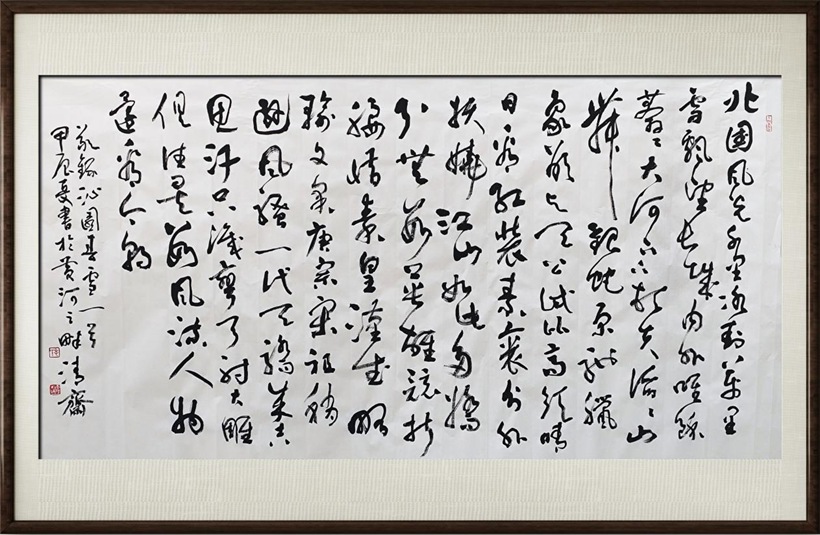 北国风光千里冰封万里
雪飘望长城内外唯馀
莽莽大河上下顿失滔滔山
舞银蛇原驰臘
象欲与天公试比高须晴
日看红装素裹分外
妖娆江山如此多娇
引无数英雄竞折
腰惜秦皇汉武略
输文采唐宗宋祖稍
逊风骚一代天骄成吉
思汗只识弯弓射大雕
俱往矣数风流人物
还看今朝
敬録沁园春雪一首
甲辰夏書於黄河之畔清齋